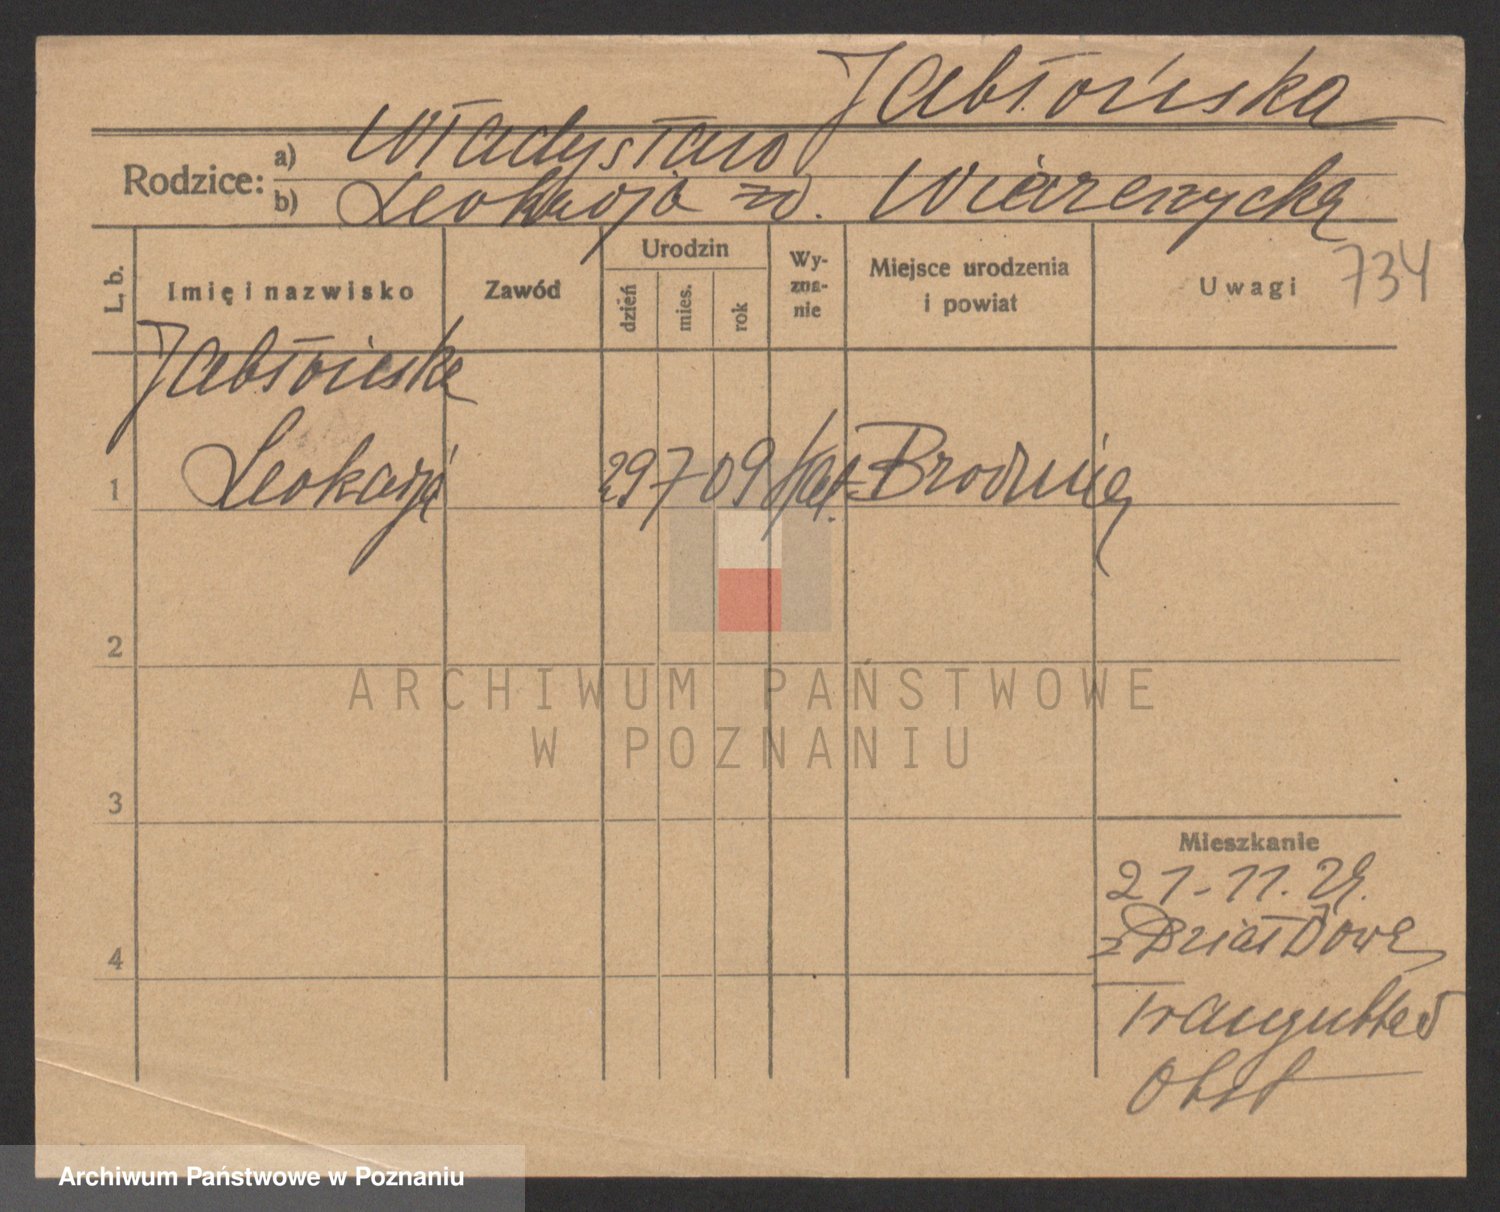 Jabłońska
Rodzice: a) Władysław
b) Leokadja zd. Wierzenycka
L. b.
Imię i nazwisko
Zawód
Urodzin
dzień
mies.
rok
Wy-
zna-
nie
Miejsce urodzenia
i powiat
Uwagi 734
Jabłońska
1 Leokadja 29 7 09 kat. Brodnica
2
3
4
Mieszkanie
21-11. 29.
z Działdowa
Traugutta
ARCHIWUM PAŃSTWOWE
W POZNANIU
Archiwum Państwowe w Poznaniu